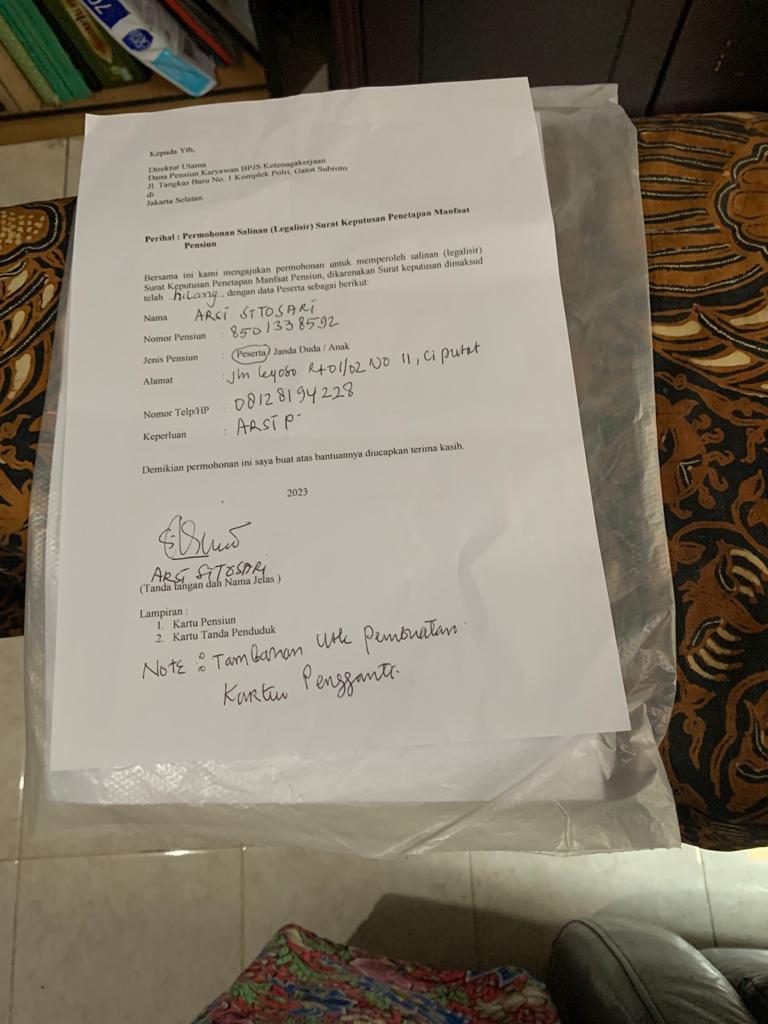 Kepada Yth,
Direktur Utama
Dana Pensiun Karyawan BPJS Ketenagakerjaan
Jl. Tangkas Baru No. 1 Komplek Polri, Gatot Subroto
di
Jakarta Selatan.
Perihal : Permohonan Salinan (Legalisir) Surat Keputusan Penetapan Manfaat
Pensiun
Bersama ini kami mengajukan permohonan untuk memperoleh salinan (legalisir)
Surat Keputusan Penetapan Manfaat Pensiun, dikarenakan Surat keputusan dimaksud
telah hilang, dengan data Peserta sebagai berikut:
Nama ARSI SITOSARI
Nomor Pensiun : 8501338592
Jenis Pensiun : Peserta / Janda Duda / Anak
Alamat : Jln Leyoso Rt 01/02 No 11, Ciputat
Nomor Telp/HP : 08128194228
Keperluan : ARSIP-
Demikian permohonan ini saya buat atas bantuannya diucapkan terima kasih.
2023
ARSI SITOSARI
(Tanda tangan dan Nama Jelas )
Lampiran :
1. Kartu Pensiun
2. Kartu Tanda Penduduk
Note : Tambahan Utk Pembuatan
Kartu Pengganti.